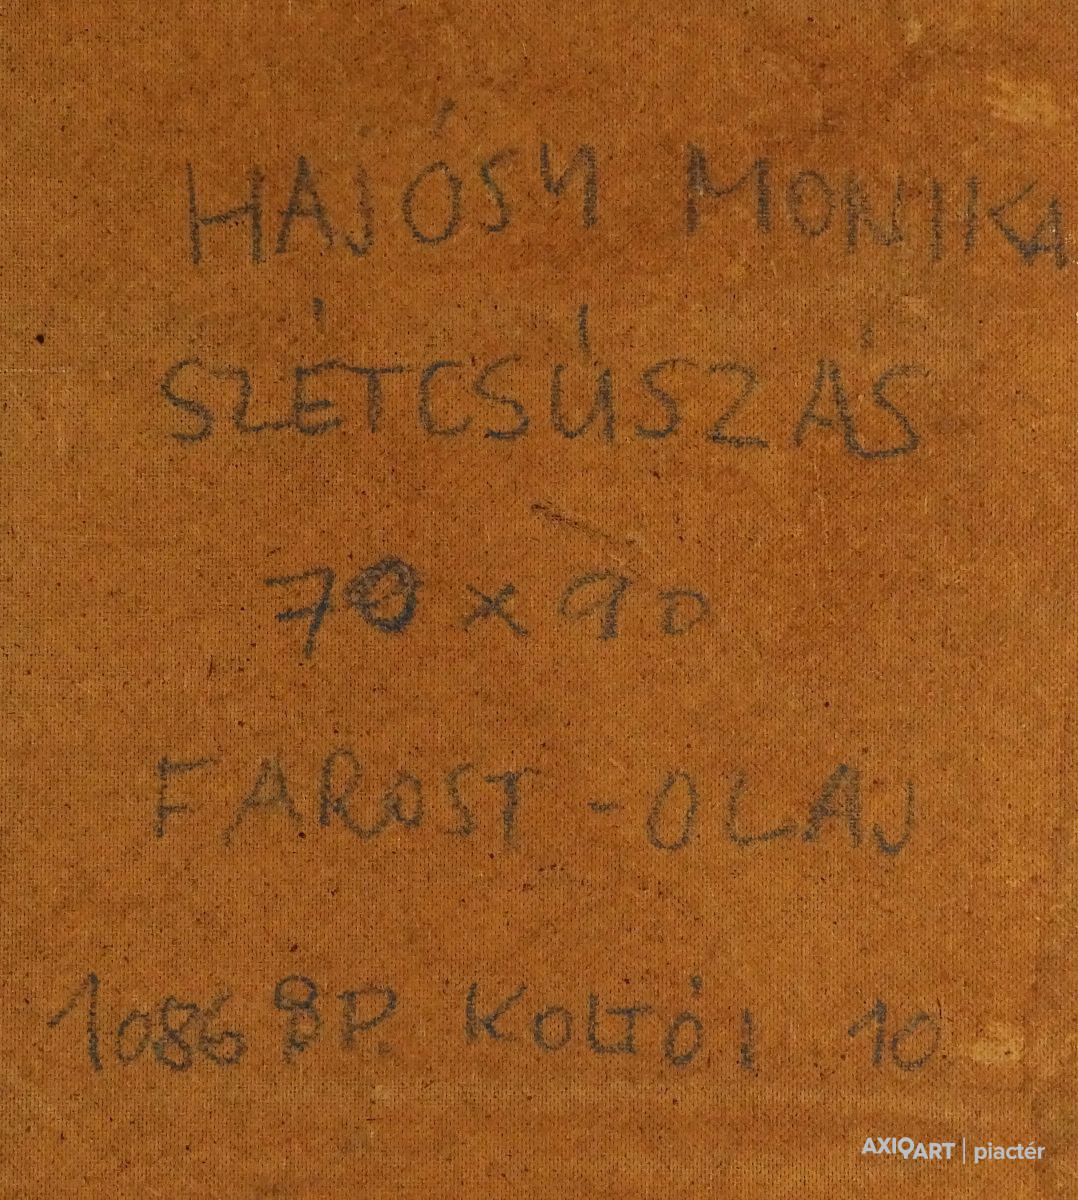 HAJÓSY MONIKA
SZÉTCSÚSZÁS
70 x 90
FAROST - OLAJ
1086 BP. KOLTÓI 10
AXIOART | piactér